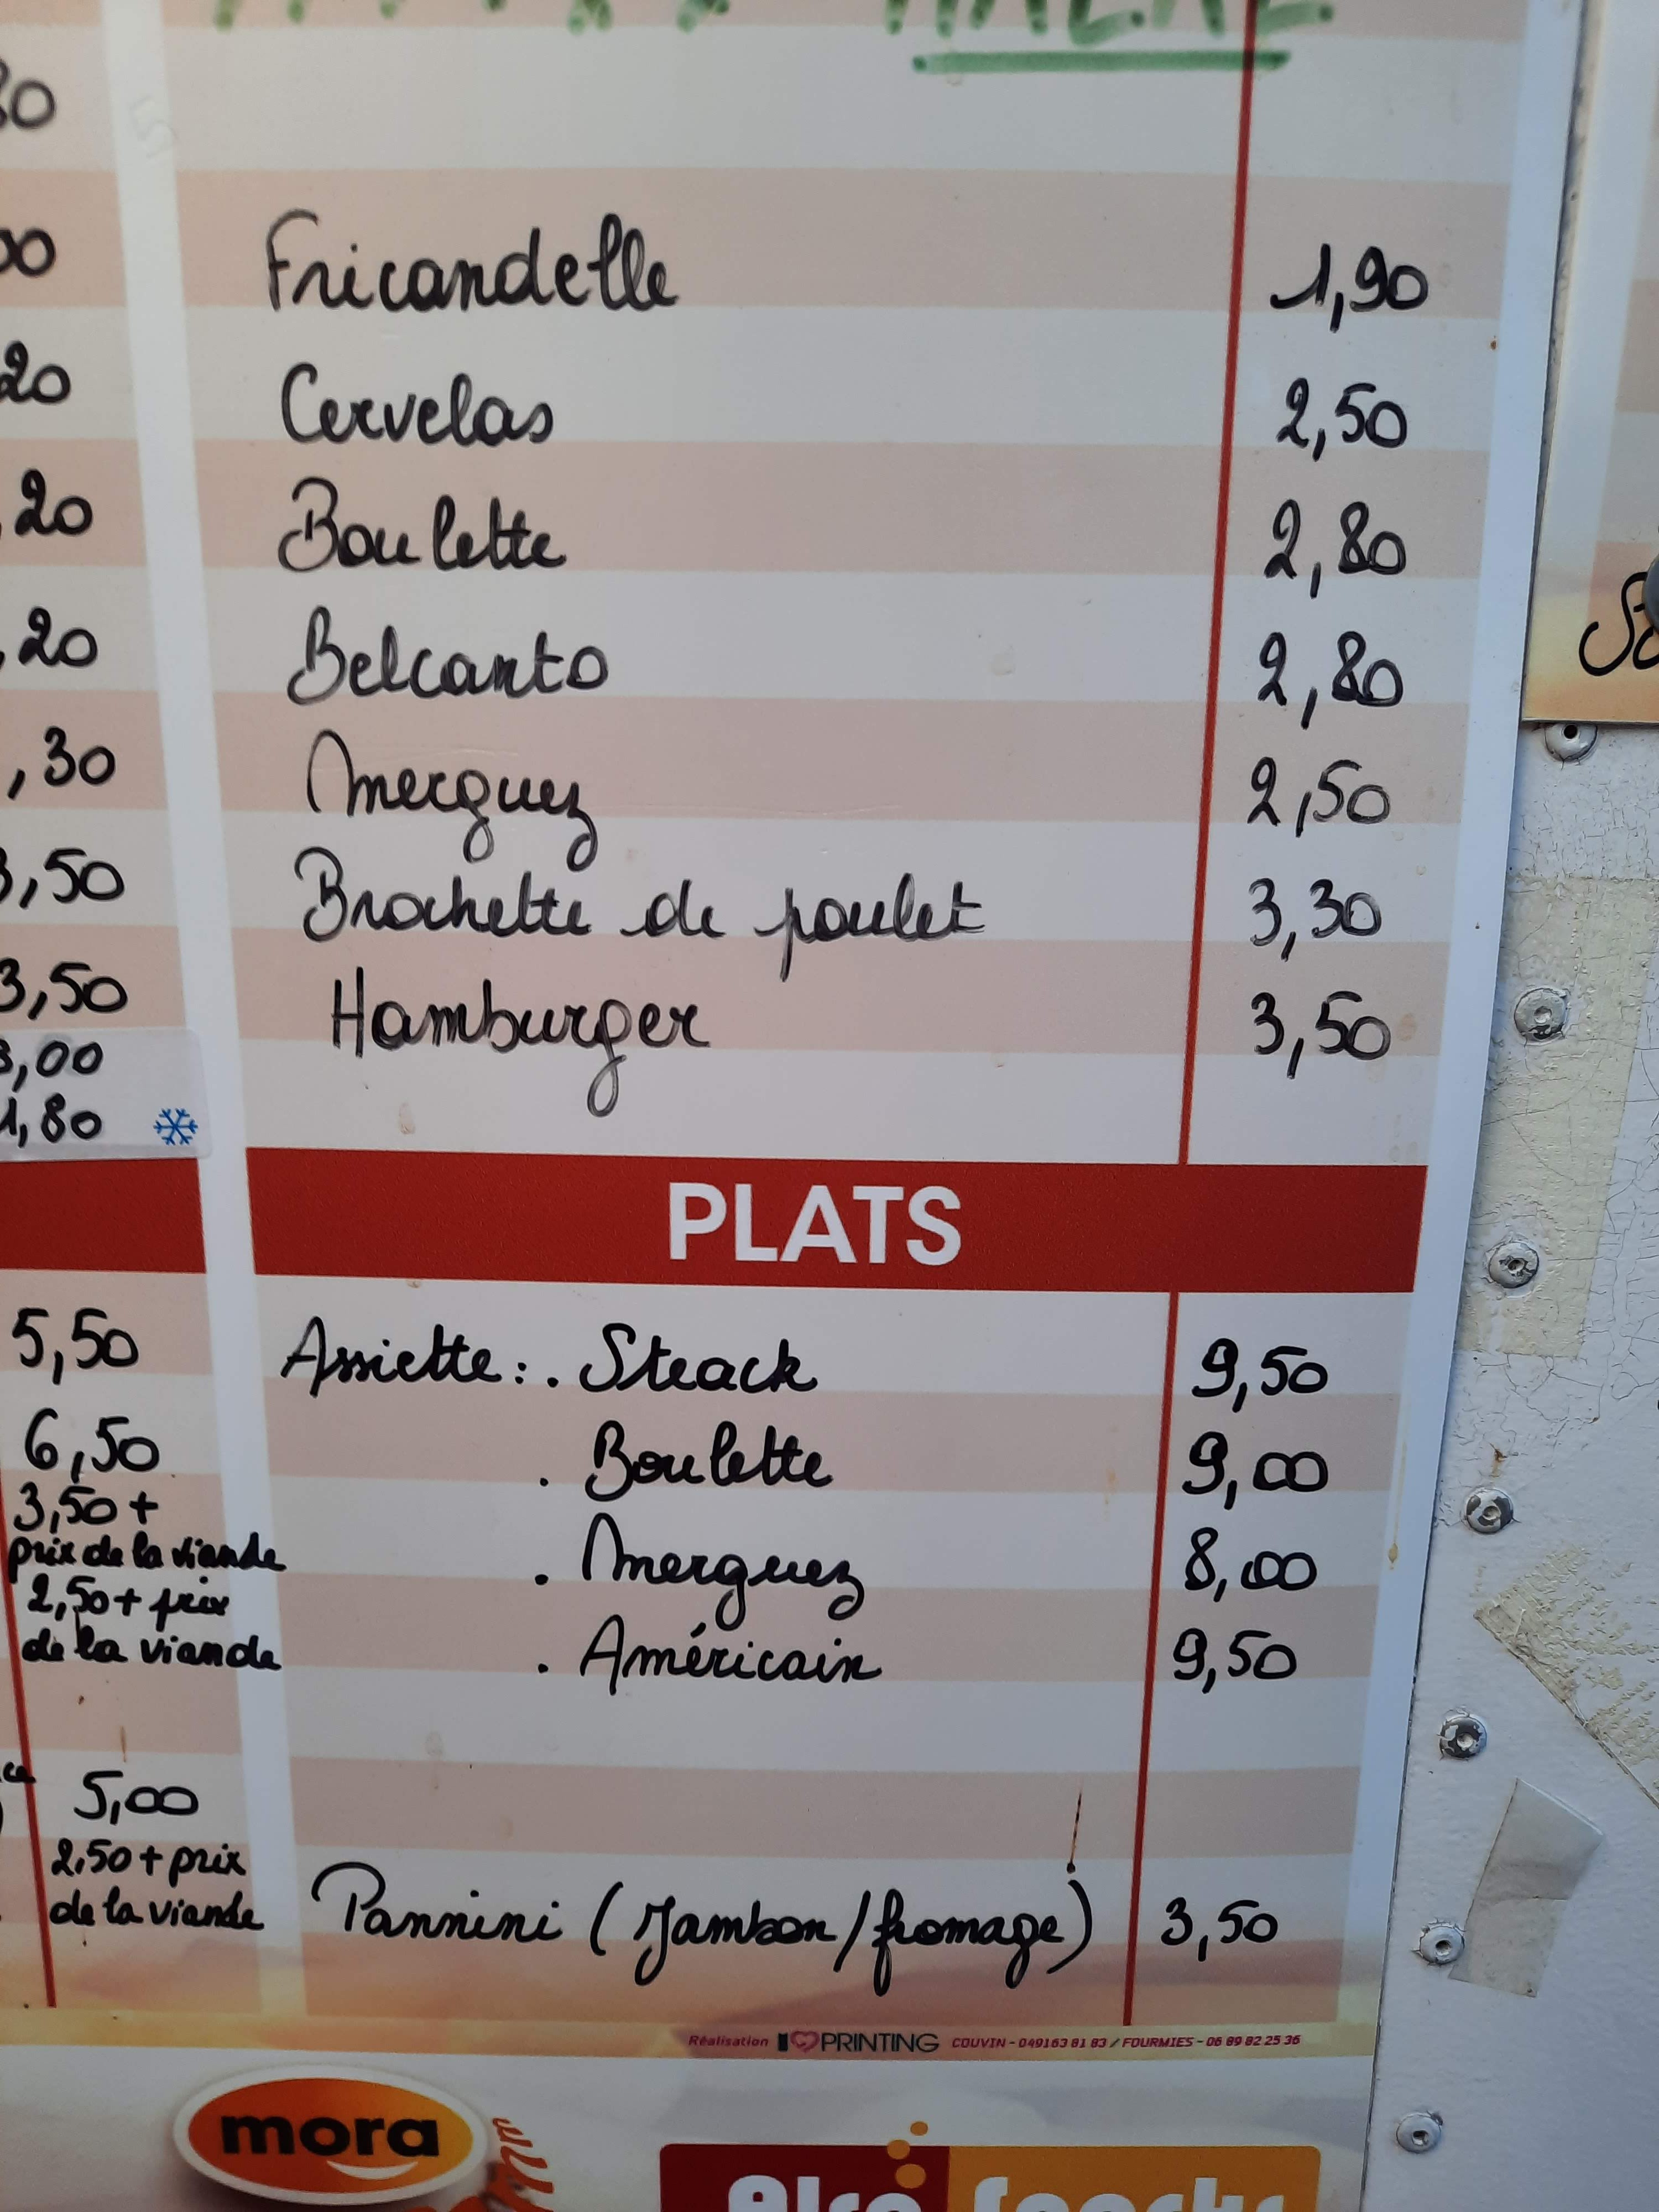 HALAL
Fricandelle 1,90
Cervelas 2,50
Boulette 2,80
Belcanto 2,80
Merguez 2,50
Brochette de poulet 3,30
Hamburger 3,50
20
,20
,20
,30
,50
3,50
,00
1,80
PLATS
Assiette : . Steack 9,50
. Boulette 9,00
. Merguez 8,00
. Américain 9,50
Pannini (Jambon/fromage) 3,50
5,50
6,50
3,50 +
prix de la viande
2,50 + prix
de la viande
5,00
2,50 + prix
de la viande
Réalisation I PRINTING COUVIN - 049163 81 83 / FOURMIES - 06 89 82 25 36
mora